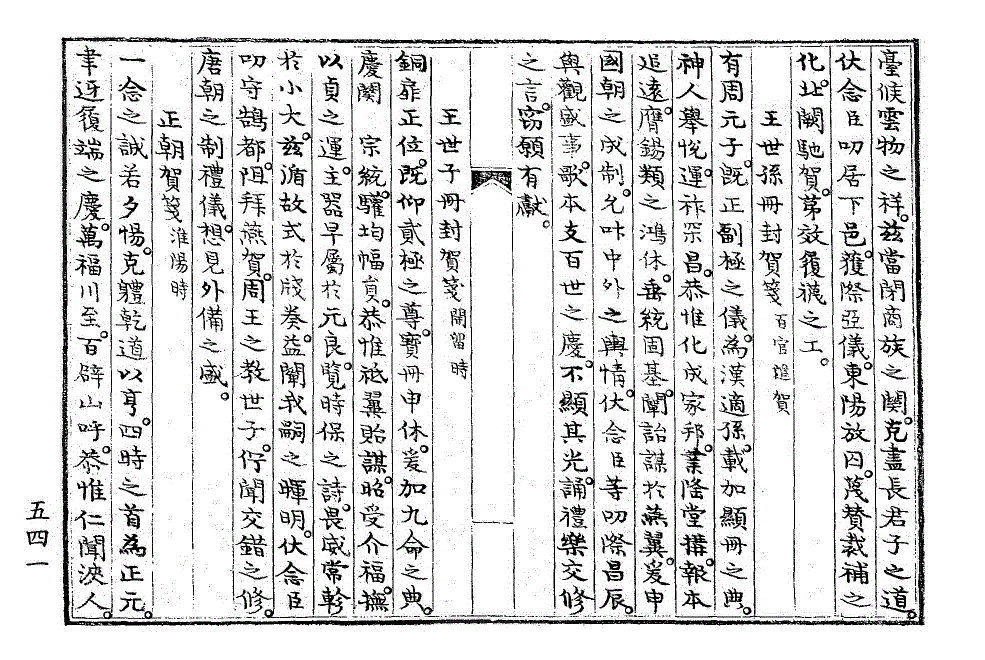 臺候雲物之祥。玆當閉商旅之關。克盡長君子之道。
伏念臣叨居下邑。獲際亞儀。東陽放囚。蔑贊裁補之
化。北闕馳賀。第效履襪之工。
王世孫冊封賀箋 百官進賀
有周元子。旣正副極之儀。爲漢適孫。載加顯冊之典。
神人擧悅。運祚罙昌。恭惟化成家邦。業隆堂搆。報本
追遠。膺錫類之鴻休。垂統固基。闡詒謀於燕翼。爰申
國朝之成制。允叶中外之輿情。伏念臣等叨際昌辰。
與觀盛事。歌本支百世之慶。不顯其光。誦禮樂交修
之言。竊願有獻。
王世子冊封賀箋 開留時
銅扉正位。旣仰貳極之尊。寶冊申休。爰加九命之典。
慶關 宗統。驩均幅員。恭惟祗翼貽謀。昭受介福。撫
以貞之運。主器早屬於元良。覽時保之詩。畏威常軫
於小大。玆循故式於牋奏。益闡我嗣之暉明。伏念臣
叨守鵠都。阻拜燕賀。周王之敎世子。佇聞交錯之修。
唐朝之制禮儀。想見外備之盛。
正朝賀箋 淮陽時
一念之誠若夕惕。克體乾道以亨。四時之首爲正元。
聿迓履端之慶。萬福川至。百辟山呼。恭惟仁聞浹人。
五四一